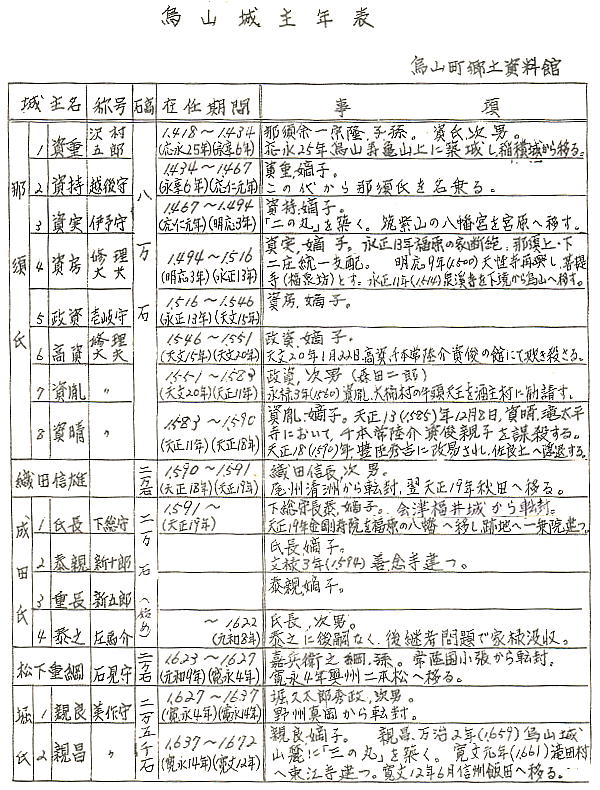 烏山城主年表
烏山町郷土資料館
城主名 称号 石高 在任期間 事項
那須氏 八万石
1 資重 沢村五郎 1418〜1434 (応永25年)(永享6年) 那須余一宗隆、子孫。資氏、次男。
応永25年烏山寿亀山上に築城し稲積城から移る。
2 資持 越後守 1434〜1467 (永享6年)(応仁元年) 資重、嫡子。
この代から那須氏を名乗る。
3 資実 伊予守 1467〜1494 (応仁元年)(明応3年) 資持、嫡子。
「二の丸」を築く。筑紫山の八幡宮を宮原へ移す。
4 資房 修理大夫 1494〜1516 (明応3年)(永正13年) 資実、嫡子。永正13年福原の家断絶、那須上・下
二庄統一支配。明応9年(1500)天性寺再興し菩提
寺(福泉坊)とす。永正11年(1514)泉渓寺を下境から烏山へ移す。
5 政資 壱岐守 1516〜1546 (永正13年)(天文15年) 資房、嫡子。
6 高資 修理大夫 1546〜1551 (天文15年)(天文20年) 政資、嫡子。
天文20年1月22日高資、千本常陸介資俊の館にて欺き殺さる。
7 資胤 〃 1551〜1583 (天文20年)(天正11年) 政資、次男(森田二郎)
永禄3年(1560)資胤、大桶村の牛頭天王を酒主村に勧請す。
8 資晴 〃 1583〜1590 (天正11年)(天正18年) 資胤、嫡子。天正13(1585)年12月8日、資晴、滝太平
寺において、千本常陸介資俊親子を謀殺する。
天正18(1590)年、豊臣秀吉に改易され、佐良土へ隠退する。
織田信雄 二万石 1590〜1591 (天正18年)(天正19年) 織田信長、次男。
尾州清洲から転封、翌天正19年秋田へ移る。
成田氏 二万石(始め)
1 氏長 下総守 1591〜 (天正19年) 下総守長泰、嫡子。会津福井城から転封。
天正19年金剛寿院を福原の八幡へ移し跡地へ一乗院建つ。
2 泰親 新十郎 氏長嫡子。
文禄3年(1594)善念寺建つ。
3 重長 新五郎 泰親、嫡子。
4 泰之 左馬介 〜1622 (元和8年) 氏長、次男。
泰之に後嗣なく、後継者問題で家禄没収。
松下重綱 石見守 二万石 1623〜1627 (元和9年)(寛永4年) 嘉兵衛之綱、孫。常陸国小張から転封。
寛永4年奥州二本松へ移る。
堀氏 二万五千石
1 親良 美作守 1627〜1637 (寛永4年)(寛永14年) 堀久太郎秀政、次男。
野州真岡から転封。
2 親昌 〃 1637〜1672 (寛永14年)(寛文12年) 親良、嫡子。親昌、万治2年(1659)烏山城
山麓に「三の丸」を築く。寛文元年(1661)滝田村
へ東江寺建つ。寛文12年6月信州飯田へ移る。